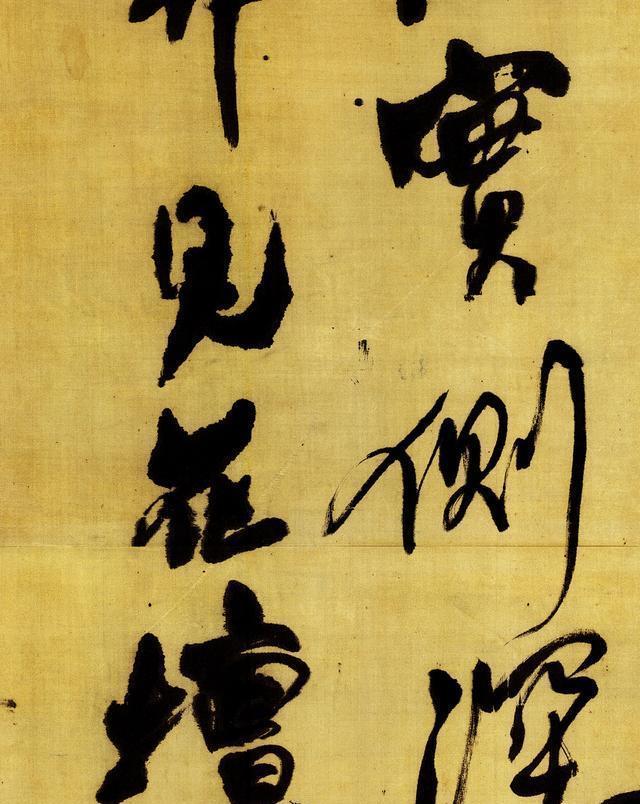 實側深
見花壇